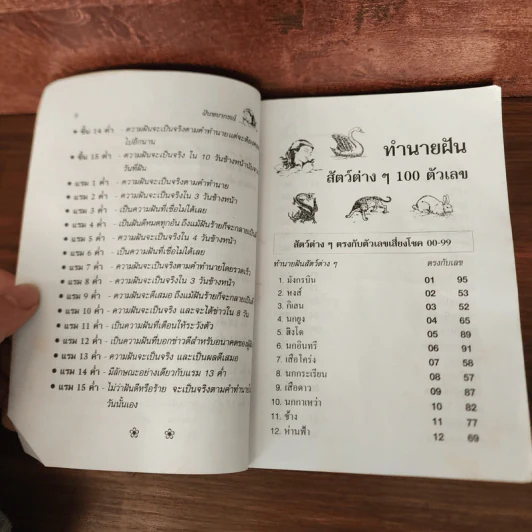 ฝันพยากรณ์
ขึ้น 14 ค่ำ - ความฝันจะเป็นจริงตามคำทำนายแต่จะต้อง
ไปอีกนาน
ขึ้น 15 ค่ำ - ความฝันจะเป็นจริง ใน 10 วันข้างหน้า
วันที่ฝัน
• แรม 1 ค่ำ - ความฝันจะเป็นจริงตามคำทำนาย
• แรม 2 ค่ำ - ความฝันจะเป็นจริงใน 3 วันข้างหน้า
• แรม 3 ค่ำ - เป็นความฝันที่เชื่อไม่ได้เลย
• แรม 4 ค่ำ - ฝันดีหมดทุกอัน ถึงแม้ฝันร้ายก็จะกลายเป็น
• แรม 5 ค่ำ - ความฝันจะเป็นจริงใน 4 วันข้างหน้า
• แรม 6 ค่ำ - เป็นความฝันที่เชื่อไม่ได้เลย
• แรม 7 ค่ำ - ความฝันจะเป็นจริงตามคำทำนายโดยรวดเร็ว
• แรม 8 ค่ำ - ความฝันจะเป็นจริงใน 3 วันข้างหน้า
• แรม 9 ค่ำ - ความฝันจะดีเสมอ ถึงแม้ฝันร้ายก็จะกลายเป็น
• แรม 10 ค่ำ - ความฝันจะเป็นจริง และจะได้ข่าวใน 8 วัน
• แรม 11 ค่ำ - เป็นความฝันที่เตือนให้ระวังตัว
• แรม 12 ค่ำ - เป็นความฝันที่บอกข่าวดีสำหรับอนาคตของ
• แรม 13 ค่ำ - ความฝันจะเป็นจริง และเป็นผลดีเสมอ
• แรม 14 ค่ำ - มีลักษณะอย่างเดียวกับแรม 13 ค่ำ
• แรม 15 ค่ำ - ไม่ว่าฝันดีหรือร้าย จะเป็นจริงตามคำทำนาย
วันนั้นเอง
ทำนายฝัน
สัตว์ต่าง ๆ 100 ตัวเลข
สัตว์ต่าง ๆ ตรงกับตัวเลขเสี่ยงโชค 00-99
ทำนายฝันสัตว์ต่าง ๆ ตรงกับเลข
1. มังกรบิน 01 95
2. หงส์ 02 53
3. กิเลน 03 52
4. นกยูง 04 65
5. สิงโต 05 89
6. นกอินทรี 06 91
7. เสือโคร่ง 07 58
8. นกกระเรียน 08 57
9. เสือดาว 09 87
10. นกกาเหว่า 10 82
11. ช้าง 11 77
12. ห่านฟ้า 12 69